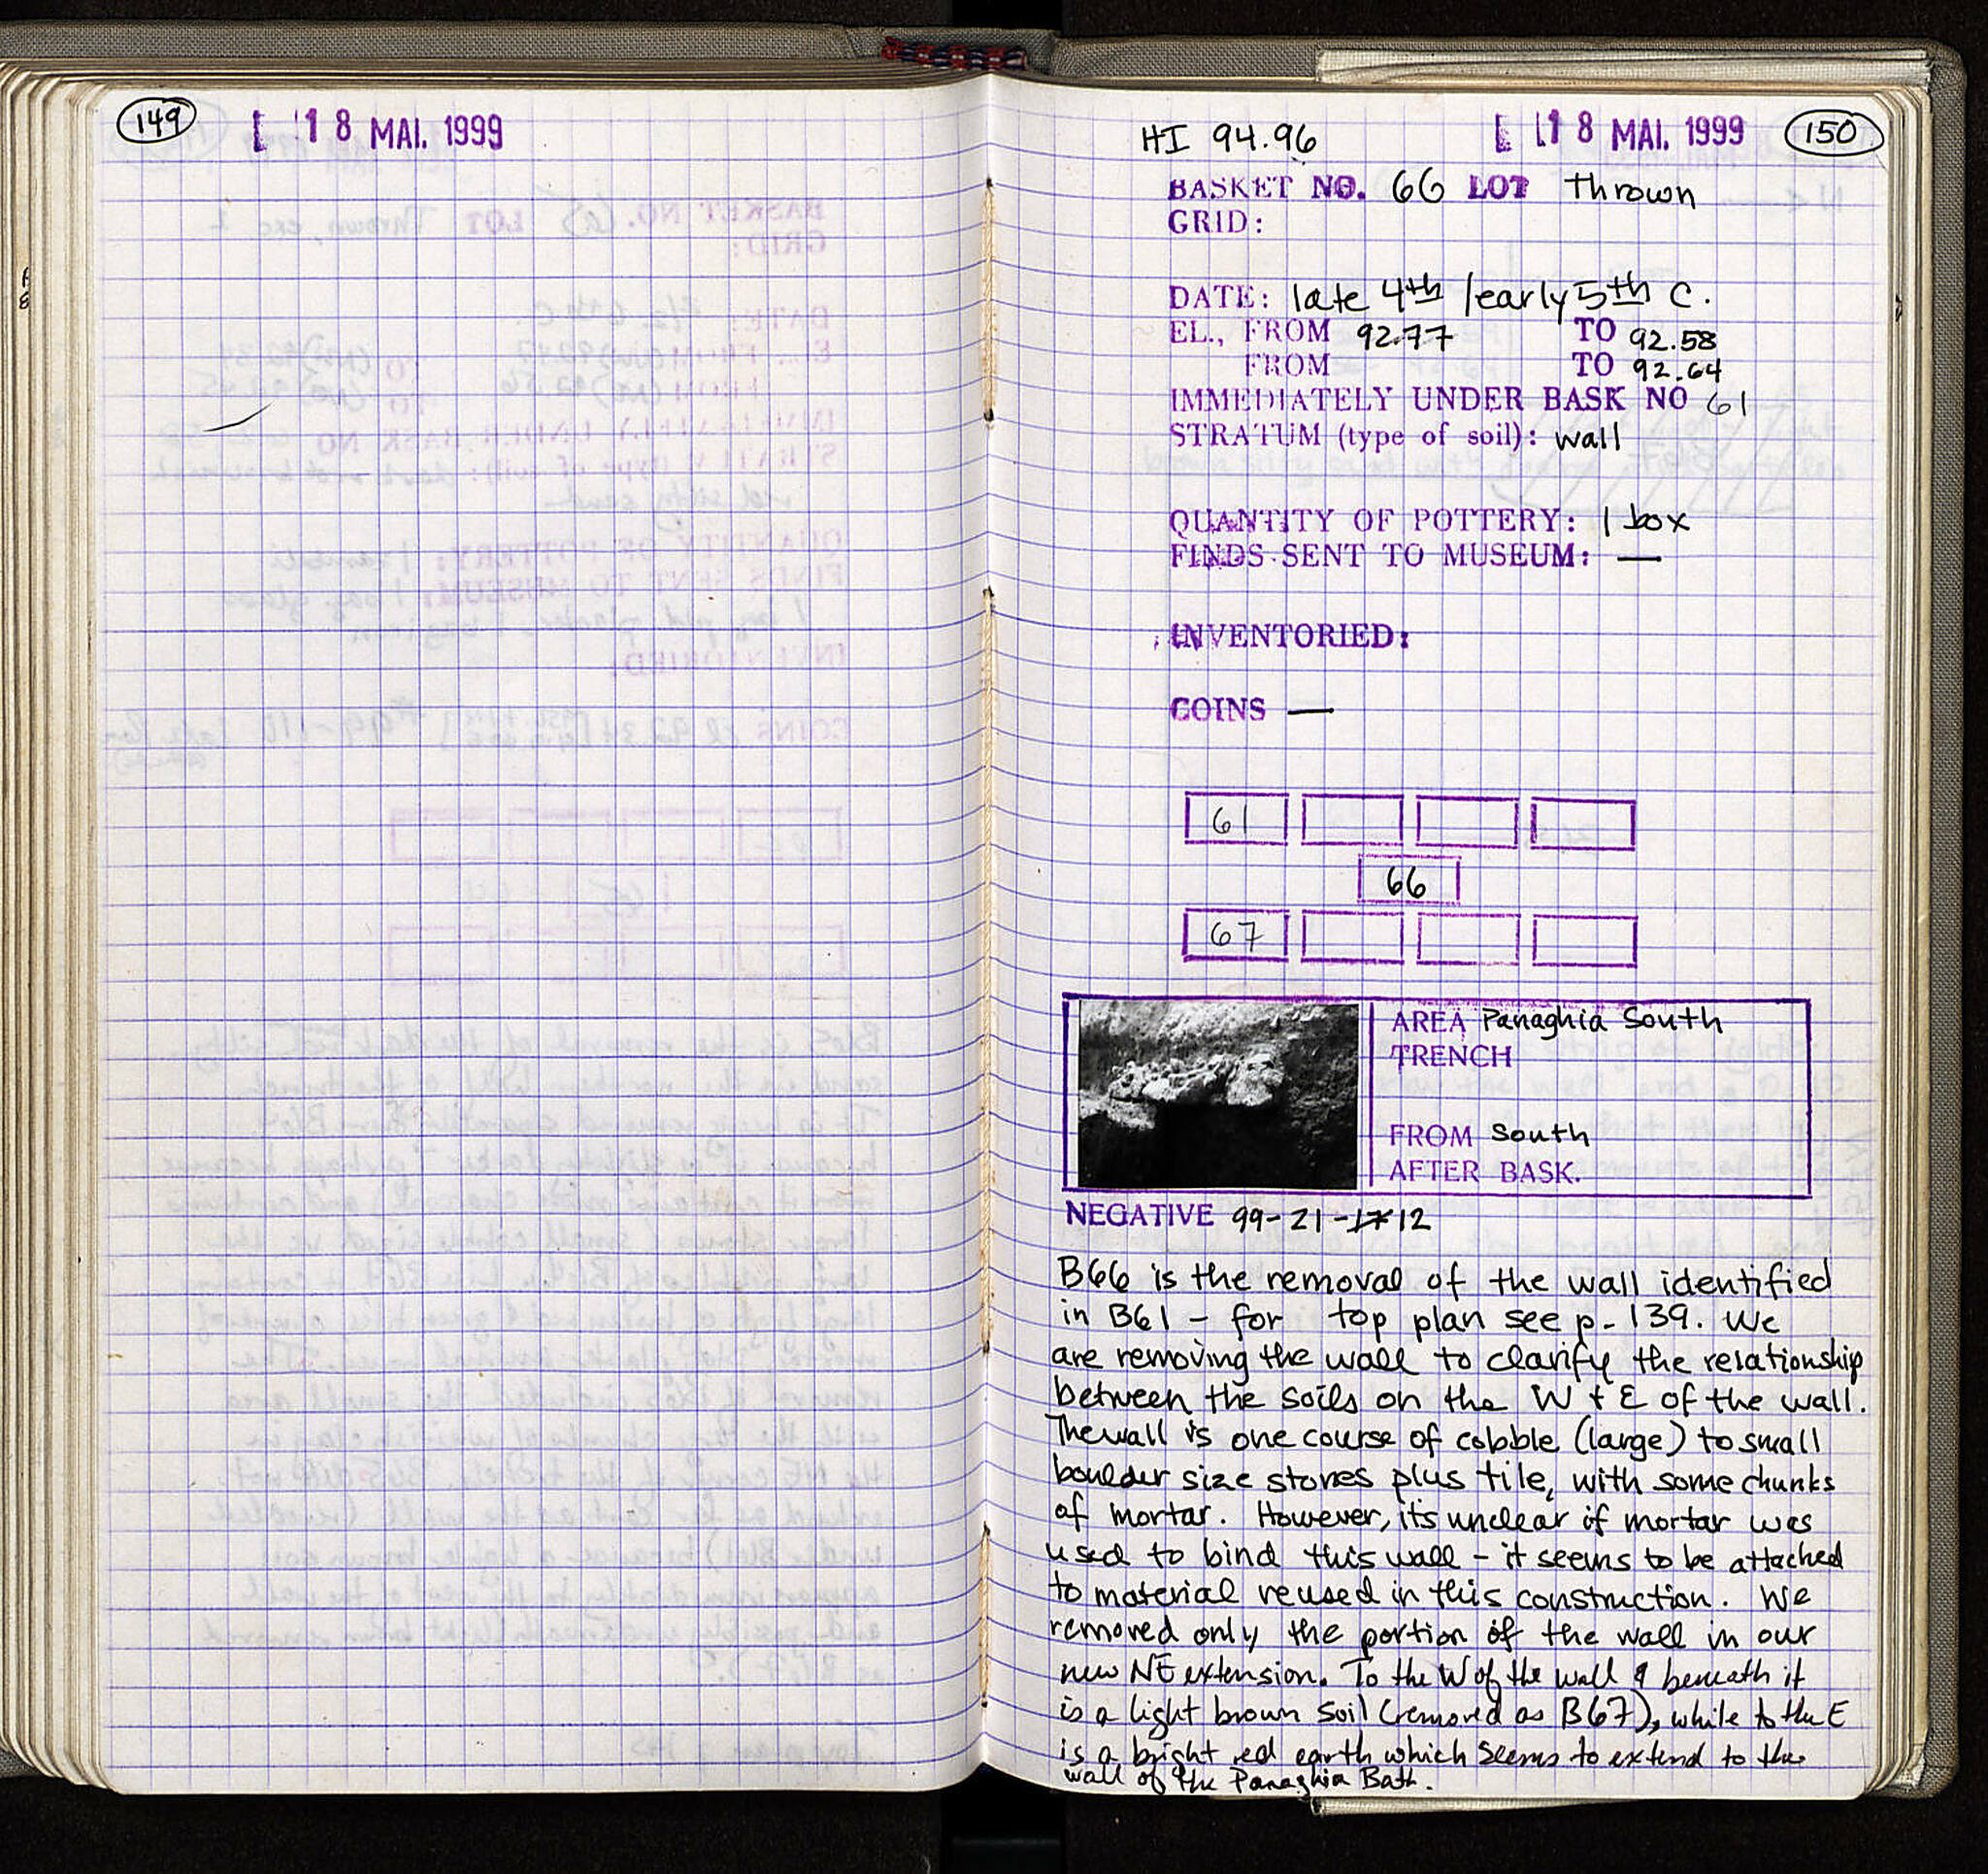 149
18 MAI. 1999
HI 94.96
18 MAI. 1999
150
BASKET NO. 66 LOT Thrown
GRID:
DATE: late 4th / early 5th C.
EL., FROM 92.77 TO 92.58
FROM TO 92.64
IMMEDIATELY UNDER BASK NO 61
STRATUM (type of soil): wall
QUANTITY OF POTTERY: 1 box
FINDS SENT TO MUSEUM: —
INVENTORIED:
COINS —
61
66
67
AREA Panaghia South
TRENCH
FROM South
AFTER BASK.
NEGATIVE 99-21-17 12
B66 is the removal of the wall identified
in B61 - for top plan see p. 139. We
are removing the wall to clarify the relationship
between the soils on the W + E of the wall.
The wall is one course of cobble (large) to small
boulder size stones plus tile, with some chunks
of mortar. However, it's unclear if mortar was
used to bind this wall - it seems to be attached
to material reused in this construction. We
removed only the portion of the wall in our
new NE extension. To the W of the wall & beneath it
is a light brown soil (removed as B67), while to the E
is a bright red earth which seems to extend to the
wall of the Panaghia Bath.